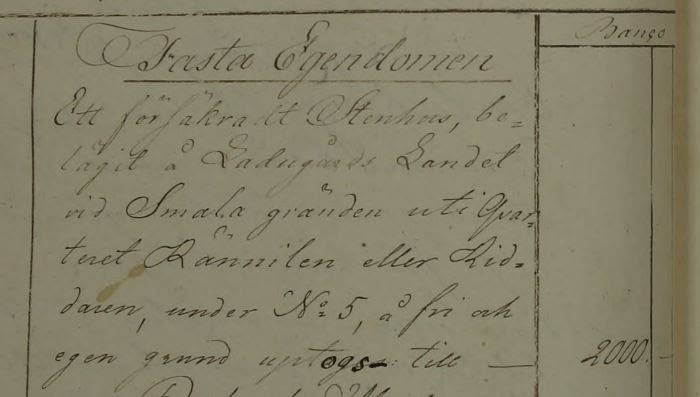 Banco
Fasta Egendomen
Ett försäkradt Stenhus, be=
lägit å Ladugårds Landet
vid Smala gränden uti Quar=
teret Rännilen eller Rid=
daren, under No 5, å fri och
egen grund uptogs till — 2000.